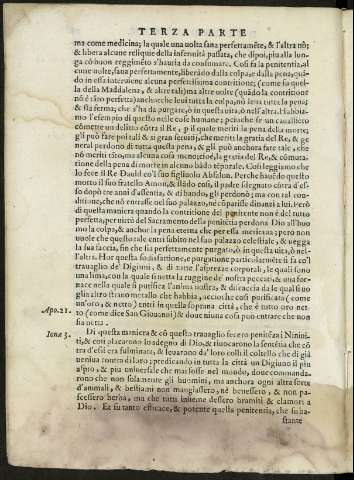 TERZA PARTE
ma come medicina; la quale una uolta sana perfettamẽte, & l'altra nõ;
& libera alcune reliquie della infermità passata, che dipoi, più alla lon-
ga cõ buon reggimẽto s'hauria da consumare. Cosi fa la penitentia, al
cune uolte, sana perfettamente, liberãdo dalla colpa, e dalla pena, quã-
do in essa interuiene alcuna perfettissima contritione, (come fu quel
la della Maddalena, & altre tali) ma altre uolte (quãdo la contritione
nõ è tãto perfetta) anchorche leui tutta la colpa, nõ leua tutta la pena:
& sta ferma; che s'ha da purgare, ò in questa uita, ò nell'altra. Habbia-
mo l'esempio di questo nelle cose humane; percioche se un cauallero
cõmette un delitto cõtra il Re, per il quale meriti la pena della morte;
gli può fare poi tali & sì gran seruitij, che meriti la gratia del Re, & ge
neral perdono di tutta questa pena, & gli può anchora fare tale, che
nõ meriti tãto, ma alcuna cosa meno; cioè, la gratia del Re, & cõmuta-
tione della pena di morte in alcuno bãdo tẽporale. Cosi leggiamo che
lo fece il Re Dauid co'l suo figliuolo Absalon. Perche hauẽdo questo
morto il suo fratello Amon, & stãdo così, il padre sdegnato cõtra d'es-
so dopò tre anni d'assentia, & di bando, gli perdonò; ma con tal con-
ditione, che nõ entrasse nel suo palazzo, né cõparisse dinanzi a lui. Però
di questa maniera quando la contritione del penitente non è del tutto
perfetta, per uirtù del Sacramento della penitẽtia perdona Dio all'huo
mo la colpa, & anchor la pena eterna che per essa meritaua; pero non
uuole che questo tale entri subito nel suo palazzo celestiale, & uegga
la sua faccia, fin che sia perfettamente purgato, ò in questa uita, ò nel-
l'altra. Hor questa sodisfattione, e purgatione particolarmẽte si fa co'l
trauaglio de' Digiuni, & di tutte l'asprezze corporali, le quali sono
una lima, con la quale si netta la ruggine de' nostri peccati, & una for-
nace nella quale si purifica l'anima nostra, & discaccia da le quali suo
glia altro strano metallo che habbia, accioche così purificata (come
un'oro, & netto) entri in quella soprana città, che è tutto oro net-
Apo. 21. to (come dice San Giouanni) & doue niuna cosa può entrare che non
sia netta.
Ionæ 3. Di questa maniera & cõ questo trauaglio fecero penitẽza i Niniui-
ti, & così placarono lo sdegno di Dio, & riuocarono la sentẽtia che cõ
tra d'essi era fulminata, & leuarono da' loro colli il coltello che di già
ueniua contra di loro; predicando in tutta la città un Digiuno il più
aspro, & più uniuersale che mai fosse nel mondo, doue commanda-
rono che non solamente gli huomini, ma anchora ogni altra sorte
d'animali, & bestiami non mangiassero, né beuessero, & non pa-
scessero herba, ma che tutti insieme dessero bramiti & clamori a
Dio. Et fu tanto efficace, & potente quella penitentia, che fu ba-
stante